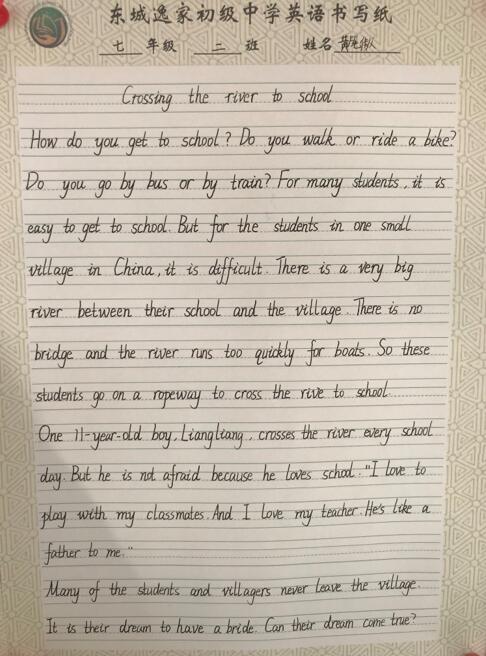 东城逸家初级中学英语书写纸
七 年级 二 班 姓名
Crossing the river to school
How do you get to school? Do you walk or ride a bike?
Do you go by bus or by train? For many students, it is
easy to get to school. But for the students in one small
village in China, it is difficult. There is a very big
river between their school and the village. There is no
bridge and the river runs too quickly for boats. So these
students go on a ropeway to cross the rive to school
One 11-year-old boy, Liangliang, crosses the river every school
day. But he is not afraid because he loves school. "I love to
play with my classmates. And I love my teacher. He's like a
father to me."
Many of the students and villagers never leave the village.
It is their dream to have a bride. Can their dream come true?